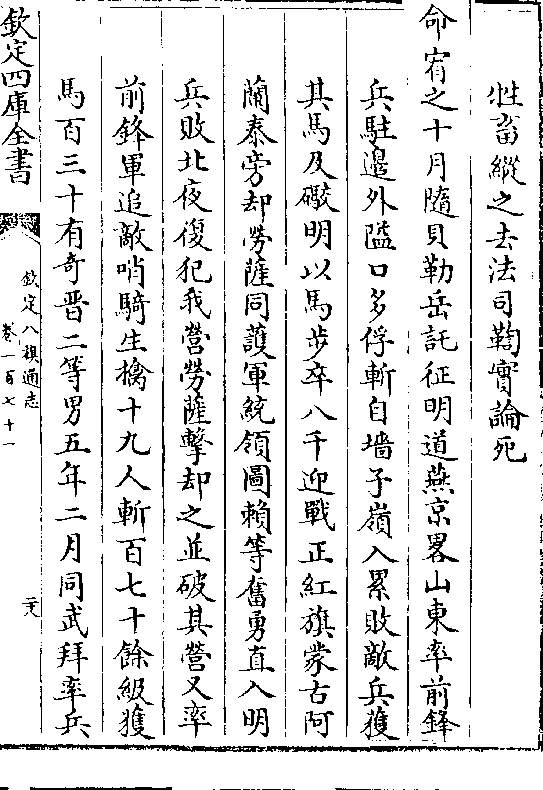 牲畜縱之去法司鞫實論死
命宥之十月隨貝勒岳託征明道燕京畧山東率前鋒
兵駐邊外隘口多俘斬自墻子嶺入累敗敵兵獲
其馬及礮明以馬步卒八千迎戰正紅旗蒙古阿
蘭泰旁却勞薩同護軍統領圖賴等奮勇直入明
兵敗北夜復犯我營勞薩擊却之並破其營又率
前鋒軍追敵哨騎生擒十九人斬百七十餘級獲
馬百三十有奇晋二等男五年二月同武拜率兵
欽定四庫全書
欽定八旗通志
卷一百七十一
二八